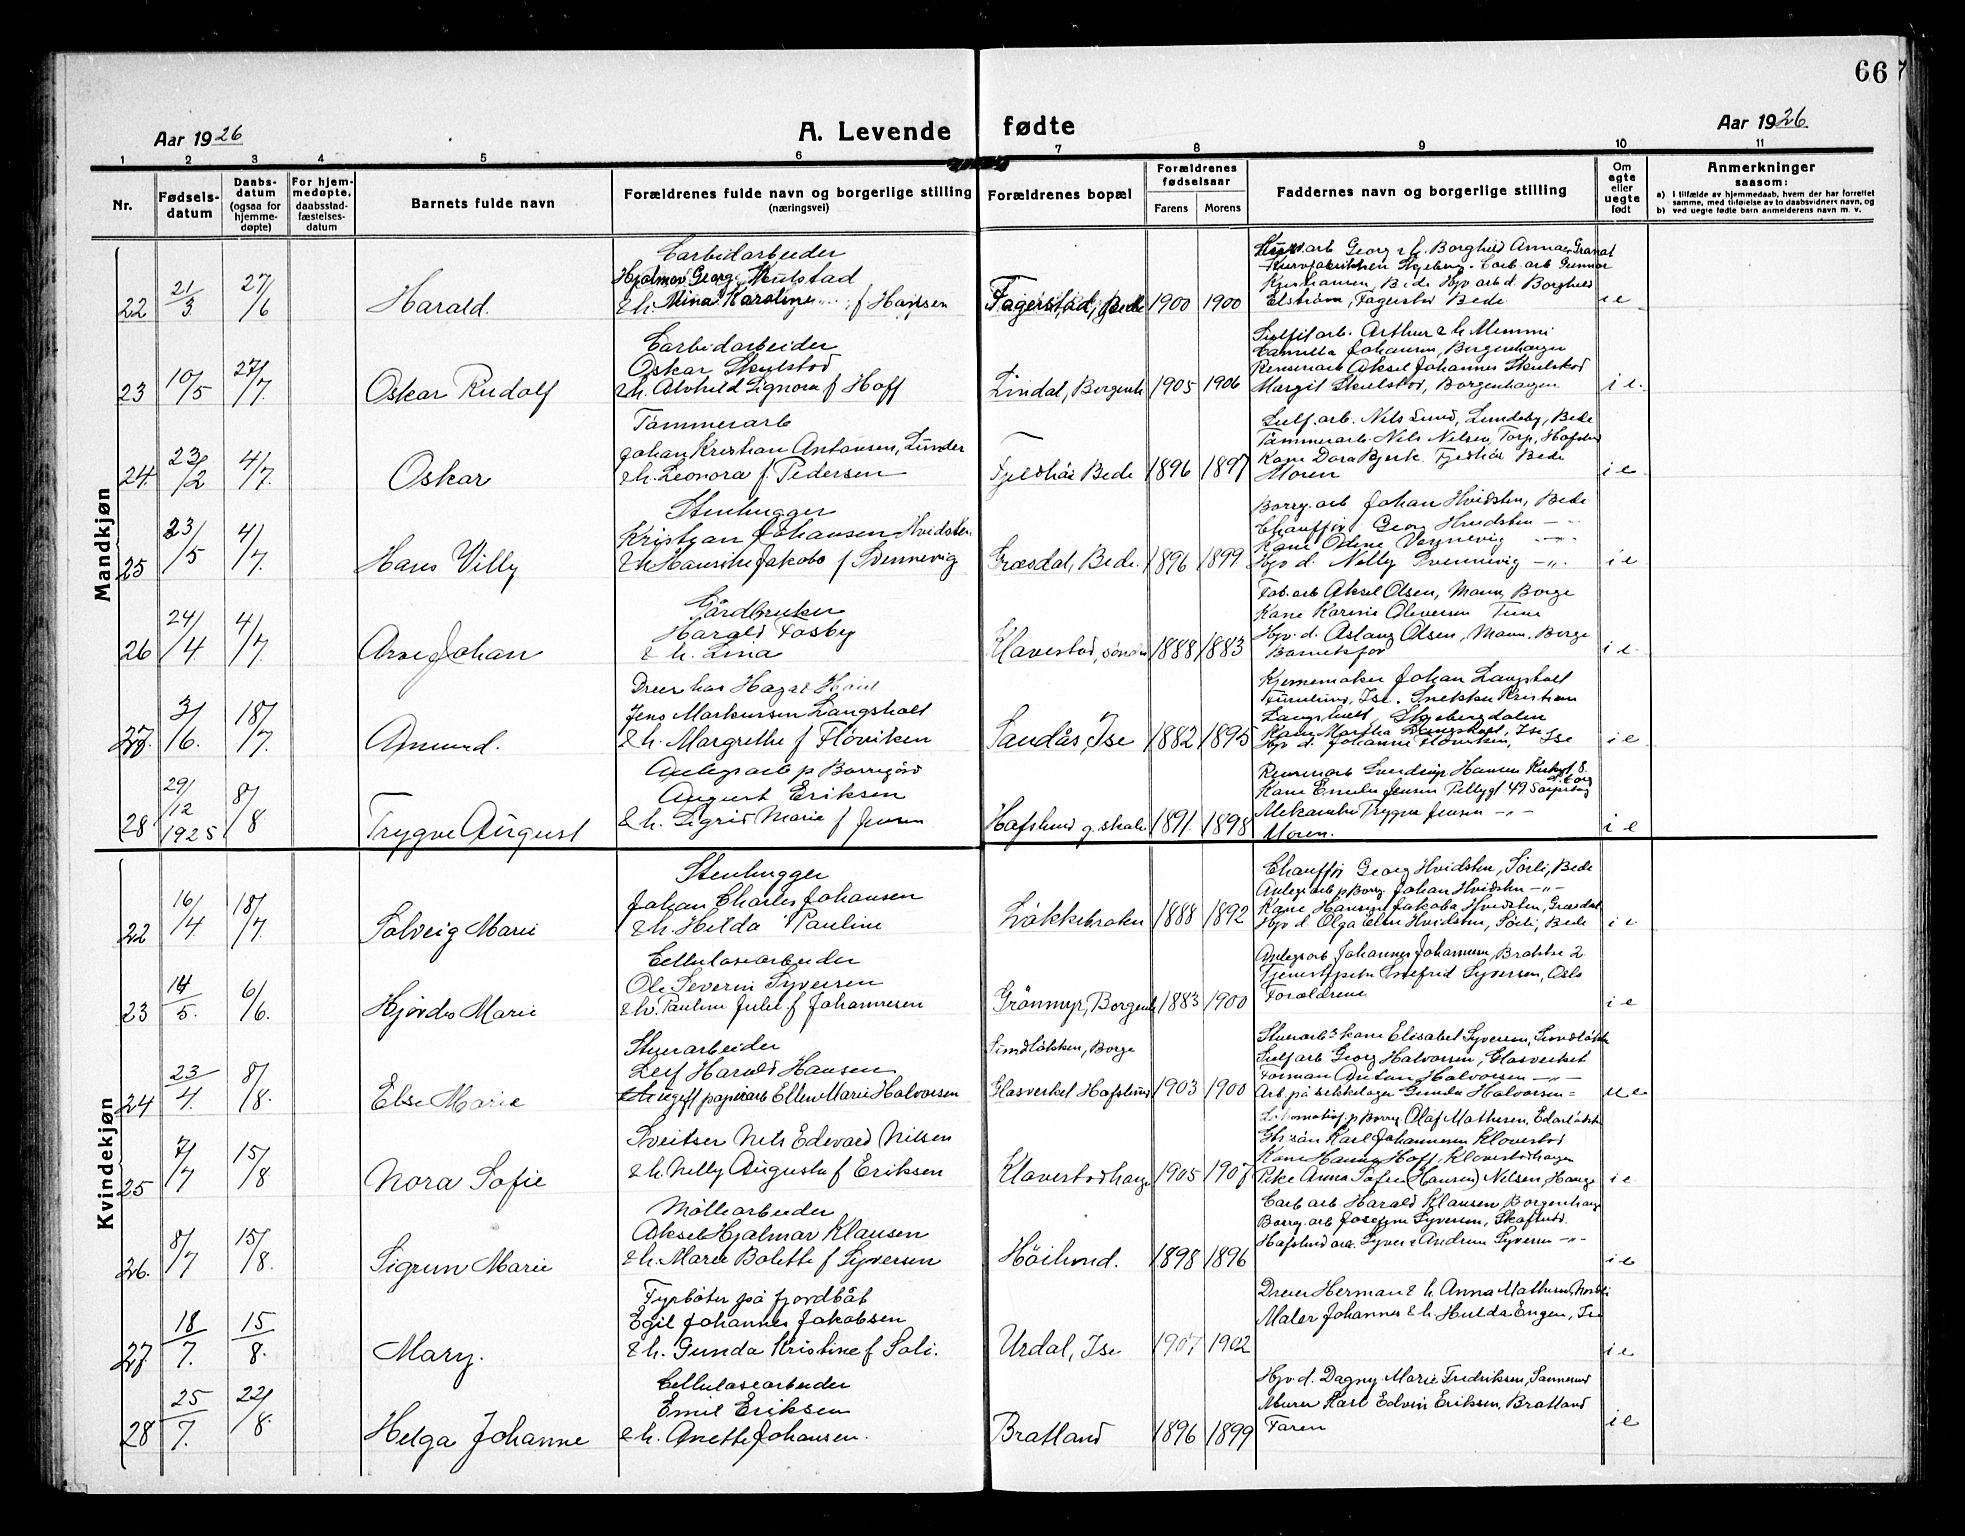 66
Aar 1926
A. Levende fødte
Aar 1926
1 2 3 4 5 6 7 8 9 10 11
Nr.
Fødsels-
datum
Daabs-
datum
(ogsaa for
hjemme-
døpte)
For hjem-
medøpte,
daabsstad-
fæstelses-
datum
Barnets fulde navn
Forældrenes fulde navn og borgerlige stilling
(næringsvei)
Forældrenes bopæl
Forældrenes
fødselsaar
Farens Morens
Faddernes navn og borgerlige stilling
Om
egte
eller
uegte
født
Anmerkninger
saasom:
a) I tilfælde av hjemmedaab, hvem der har forrettet
samme, med tilføielse av to daabsvidners navn, og
b) ved uegte fødte barn anmelderens navn m. v.
Mandkjøn
22 21/3 27/6 Harald.
Carbidarbeider
Hjalmar Georg Skulstad
& h. Mina Karoline f Hansen
Fagerstad, Bede 1900 1900
Elstrøm, Fagerstad Bede
i e
23 10/5 27/7 Oskar Rudolf
Carbidarbeider
Oskar Skulstad
& h. Alvhild Signora f Hoff
Lindal, Borgenh 1905 1906
Sulfitarb. Arthur & h Memmi
Camilla Johansen, Borgenhagen
Renserarb Aksel Johannes Skulstad
Margit Skulstad, Borgenhaugen
i e.
24. 23/2 4/7. Oskar
Tømmerarb
Johan Kristian Antonsen, Lunder
& h. Leonora f. Pedersen
Fjeldhøi Bede 1896 1897
Sulf. arb. Nils Lund, Lundeby, Bede
Tømmerarb. Nils Nilsen, Torp, Hafslund
Kone Dora Bjerk. Fjeldhøi Bede
Moren
i e
25 23/5 4/7. Hans Villy
Stenhugger
Kristian Johansen Hvidsten
& h Hansine Jakoba f Svennevig
Græsdal, Bede. 1896 1899
Borrg. arb Johan Hvidsten, Bede
Chauffør Georg Hvidsten — " —
Hjv d. Nelly Svennevig — " —
i e
26 24/4 4/7. Arne Johan
Gårdbruker
Harald Fosby
& h. Lina
Klavestad, søndre 1888 1883
Fab. arb Aksel Olsen, Moum, Borge
Kone Karine Oliversen Tune
Hjv. d. Aslaug Olsen, Moum. Borge
Barnets far
i e.
27. 3/6. 18/7. Amund.
Jens Markussen Langsholt
& h. Margrethe f Floviken
Sandås, Ise 1882 1895
Kjernemaker Johan Langsholt
Ise. Snekker Kristian
Langsholt, Skjebergdalen
Kone Martha Langsholt, Ise
Hjv d. Johanne Floviken, Ise
i e
28 29/12 1925 8/8 Trygve August
Anlegsarb p Borregård
August Eriksen
& h. Sigrid Marie f Jensen
Hafslund g. skole 1891. 1898
Kone Emilie Jensen Pellygt 49 Sarpsborg
Trygve Jensen — " —
Moren.
i e
Kvindekjøn
22 16/4 18/7. Solveig Marie
Stenhugger
Johan Charles Johansen
& h Hilda Pauline
Løkkebroken 1888 1892
Chauffør Georg Hvidsten, Sørli, Bede
Anlegsarb p Borrg. Johan Hvidsten — " —
Kone Hansine Jakoba Hvidsten, Græsdal
Hjv d. Olga Elise Hvidsten, Sørli, Bede
i e
23 14/5. 6/6. Hjørdis Marie
Cellulosearbeider
Ole Severin Syversen
& h. Pauline Julie f Johannesen
Grönmyr, Borgenh 1883 1900
Anlegsarb Johannes Johannesen, Brattli 2
Tjenestepike Syversen, Oslo
Forældrene
i e
24 23/4. 8/8. Else Marie
Leif Harald Hansen
& ugift papirarb Ellen Marie Halvorsen
Sundløkken, Borge
Glasverket Hafslund 1903 1900
kone Elisabet Syversen, Sundløkken
Sulf arb Georg Halvorsen, Glasverket
Forman Anton Halvorsen — " —
Arb på sekkelager Gunda Halvorsen =
u e
25 7/7 15/8 Nora Sofie
Sveitser Nils Edvard Nilsen
& h. Nelly Augusta f Eriksen
Klavestadhaugen 1905 1907
Lokomotivf. p Borrg. Olaf Mathisen,
Karl Johannesen Klavestad
Kone Hanna Hoff, Klavestadhaugen
Pike Anna Sofie (Hansen) Nilsen, Hauge
i e
26. 8/7 15/8. Sigrun Marie
Møllearbeider
Aksel Hjalmar Klausen
& h. Marie Bolette f Syversen
Höilund. 1898 1896
Carb arb Harald Klausen Borgenhaug
Borrg. arb Josefine Syversen, Skaflund.
Hafslund arb. Syver & Andrine Syversen — " —
i e
27. 18/7. 15/8. Mary.
Fyrbøter på fjordbåt
Egil Johannes Jakobsen
& h. Gunda Kristine f Soli.
Urdal, Ise 1907 1902
Dreier Herman & h Anna Mathisen, Nordli
Maler Johannes & h Hulda Engen, Ise
i e
28 25/7. 22/8. Helga Johanne
Cellulosearbeider
Emil Eriksen
& h. Anette Johansen.
Bratland 1896 1899
Hjv. d. Dagny Marie Fredriksen, Sannesund
Murer Karl Edvin Eriksen, Bratland
Faren
i e